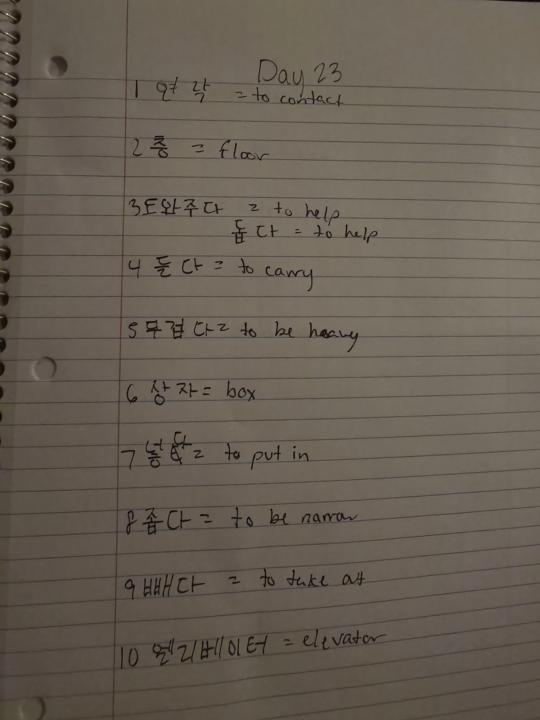 Day 23
1 연락 = to contact
2 층 = floor
3 도와주다 = to help
돕다 = to help
4 들다 = to carry
5 무겁다 = to be heavy
6 상자 = box
7 = to put in
8 좁다 = to be narrow
9 빼다 = to take out
10 엘리베이터 = elevator